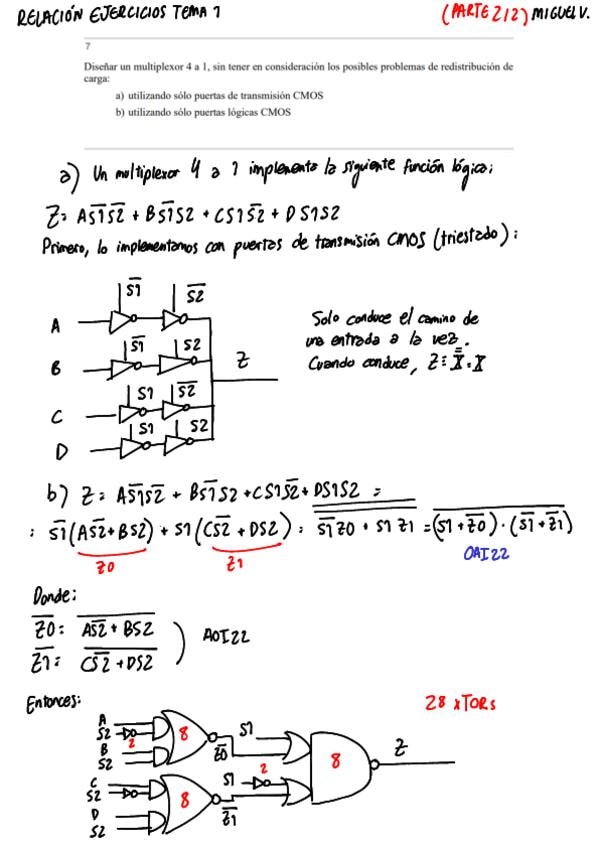 RELACIÓN EJERCICIOS TEMA 1 (PARTE 2/2) MIGUEL V.
7
Diseñar un multiplexor 4 a 1, sin tener en consideración los posibles problemas de redistribución de
carga:
a) utilizando sólo puertas de transmisión CMOS
b) utilizando sólo puertas lógicas CMOS
a) Un multiplexor 4 a 1 implementa la siguiente función lógica:
Z = A S̅1̅ S̅2̅ + B S̅1̅ S2 + C S1 S̅2̅ + D S1 S2
Primero, lo implementamos con puertas de transmisión CMOS (triestado):
A S̅1̅ S̅2̅
B S̅1̅ S2
C S1 S̅2̅
D S1 S2
Z
Solo conduce el camino de
una entrada a la vez.
Cuando conduce, Z = X̿ = X
b) Z = A S̅1̅ S̅2̅ + B S̅1̅ S2 + C S1 S̅2̅ + D S1 S2 =
= S̅1̅ (A S̅2̅ + B S2) + S1 (C S̅2̅ + D S2) = S̅1̅ Z0 + S1 Z1 = (S1 + Z̅0̅) · (S̅1̅ + Z̅1̅)
Z0 Z1 OAI22
Donde:
Z̅0̅ = A S̅2̅ + B S2
Z̅1̅ = C S̅2̅ + D S2
AOI22
Entonces:
28 xTORs
A
S2 2
B
S2
8 Z̅0̅ S1
C
S2
D
S2
8 Z̅1̅ S1 2
8 Z